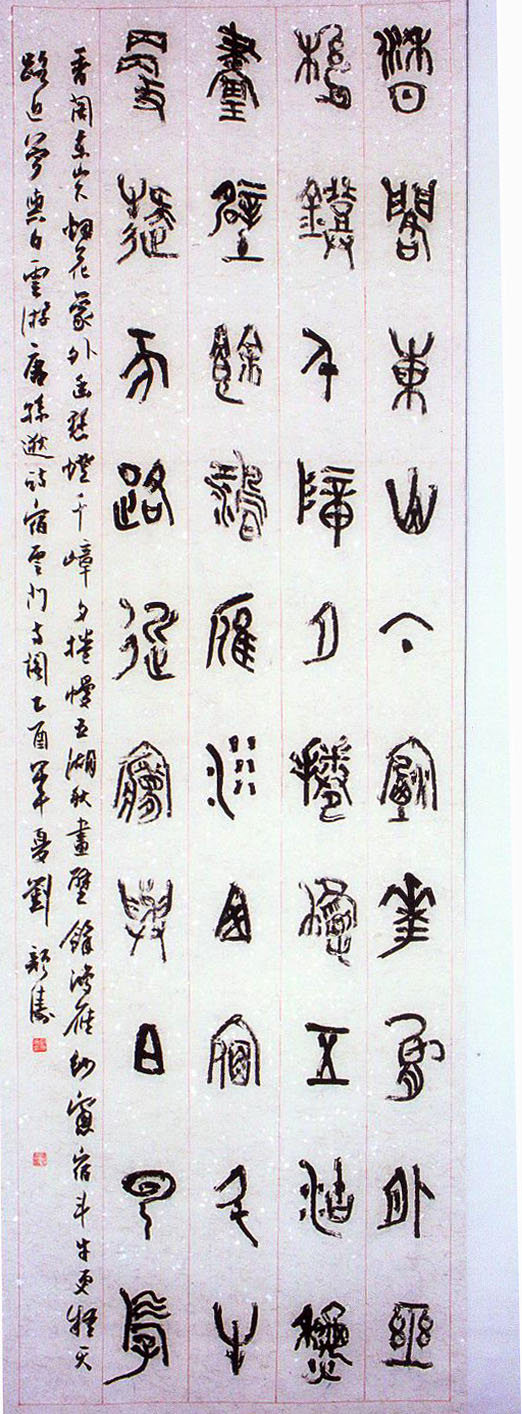 香閣東山下煙花象外幽
懸鐙千嶂夕捲幔五湖秋
畫壁餘鴻雁紗窗宿斗牛
更疑天路近夢與白雲游
香閣東山下烟花象外幽懸燈千嶂夕捲幔五湖秋畫壁餘鴻雁紗窗宿斗牛更疑天
路近夢與白雲游唐孫逖詩宿雲門寺閣乙酉年夏劉顏濤